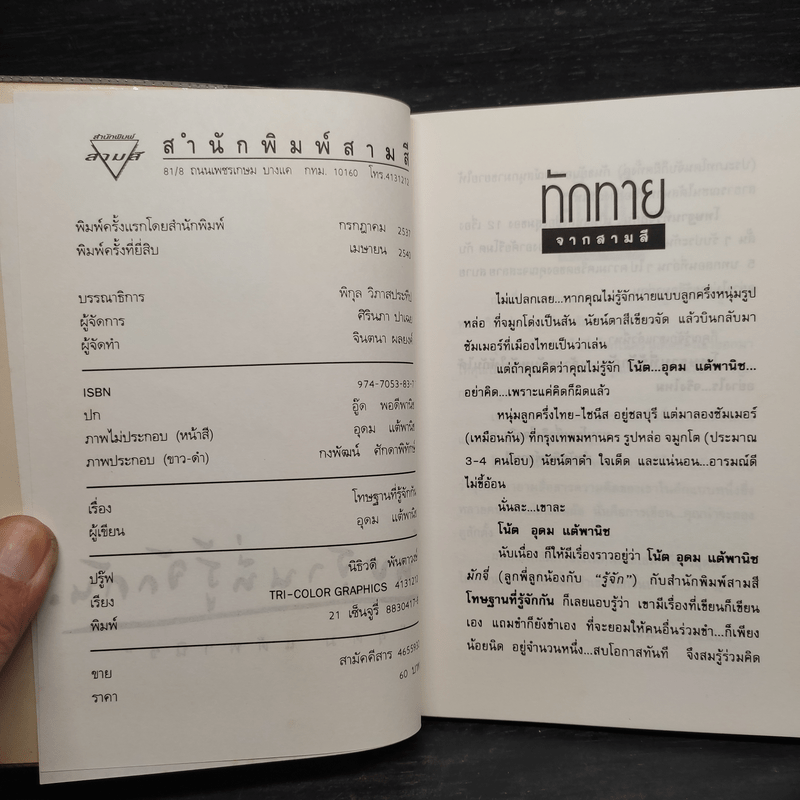 สำนักพิมพ์
สามสี
สำนักพิมพ์สามสี
81/8 ถนนเพชรเกษม บางแค กทม. 10160 โทร.4131212
พิมพ์ครั้งแรกโดยสำนักพิมพ์ กรกฎาคม 2537
พิมพ์ครั้งที่ยี่สิบ เมษายน 2540
บรรณาธิการ พิกุล วิภาสประทีป
ผู้จัดการ ศิรินภา
ผู้จัดทำ จินตนา ผลยงค์
ISBN 974-7053-83-
ปก อู๊ด พอดีพานิช
ภาพไม่ประกอบ (หน้าสี) อุดม แต้พานิช
ภาพประกอบ (ขาว-ดำ) กงพัฒน์ ศักดาพิทักษ์
เรื่อง โทษฐานที่รู้จักกัน
ผู้เขียน อุดม แต้พานิช
ปรู๊ฟ นิธิวดี
เรียง TRI-COLOR GRAPHICS 4131212
พิมพ์ 21 เซ็นจูรี่ 8830417-
ขาย สามัคคีสาร
ราคา 60 บาท
ทักทาย
จากสามสี
ไม่แปลกเลย...หากคุณไม่รู้จักนายแบบลูกครึ่งหนุ่มรูป
หล่อ ที่จมูกโด่งเป็นสัน นัยน์ตาสีเขียวจัด แล้วบินกลับมา
ซัมเมอร์ที่เมืองไทยเป็นว่าเล่น
แต่ถ้าคุณคิดว่าคุณไม่รู้จัก โน้ต...อุดม แต้พานิช...
อย่าคิด...เพราะแค่คิดก็ผิดแล้ว
หนุ่มลูกครึ่งไทย-ไชนีส อยู่ชลบุรี แต่มาลองซัมเมอร์
(เหมือนกัน) ที่กรุงเทพมหานคร รูปหล่อ จมูกโต (ประมาณ
3-4 คนโอบ) นัยน์ตาดำ ใจเด็ด และแน่นอน...อารมณ์ดี
ไม่ขี้อ้อน
นั่นละ...เขาละ
โน้ต อุดม แต้พานิช
นับเนื่อง ก็ให้มีเรื่องราวอยู่ว่า โน้ต อุดม แต้พานิช
มักจี่ (ลูกพี่ลูกน้องกับ "รู้จัก") กับสำนักพิมพ์สามสี
โทษฐานที่รู้จักกัน ก็เลยแอบรู้ว่า เขามีเรื่องที่เขียนก็เขียน
เอง แถมขำก็ยังขำเอง ที่จะยอมให้คนอื่นร่วมขำ...ก็เพียง
น้อยนิด อยู่จำนวนหนึ่ง...สบโอกาสทันที จึงสมรู้ร่วมคิด